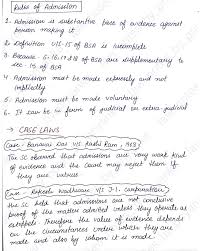 Rules of Admission
1. Admission is substantive piece of evidence against
person making it
2. Definition U/S-15 of BSA is incomplete
3. Because 16,17,18 of BSA are supplementary to
sec-15 of BSA
4 Admission must be made expressly and not
impliedly
5. Admission must be made voluntary
6. It can be in form of judicial or extra-judicial
→ CASE LAWS
Case - Banwari Das V/S
The SC observed that admissions are very weak kind
of evidence and the court may reject them if
they are untrue
Case - Rakesh Wadhawan V/S J.I. corporation
The SC held that admissions are not conclusive
proof of the matter admitted unless they operate as
estoppel. Therefore the value of evidence depends
on the circumstances under which they are
made and also by whom it is made.